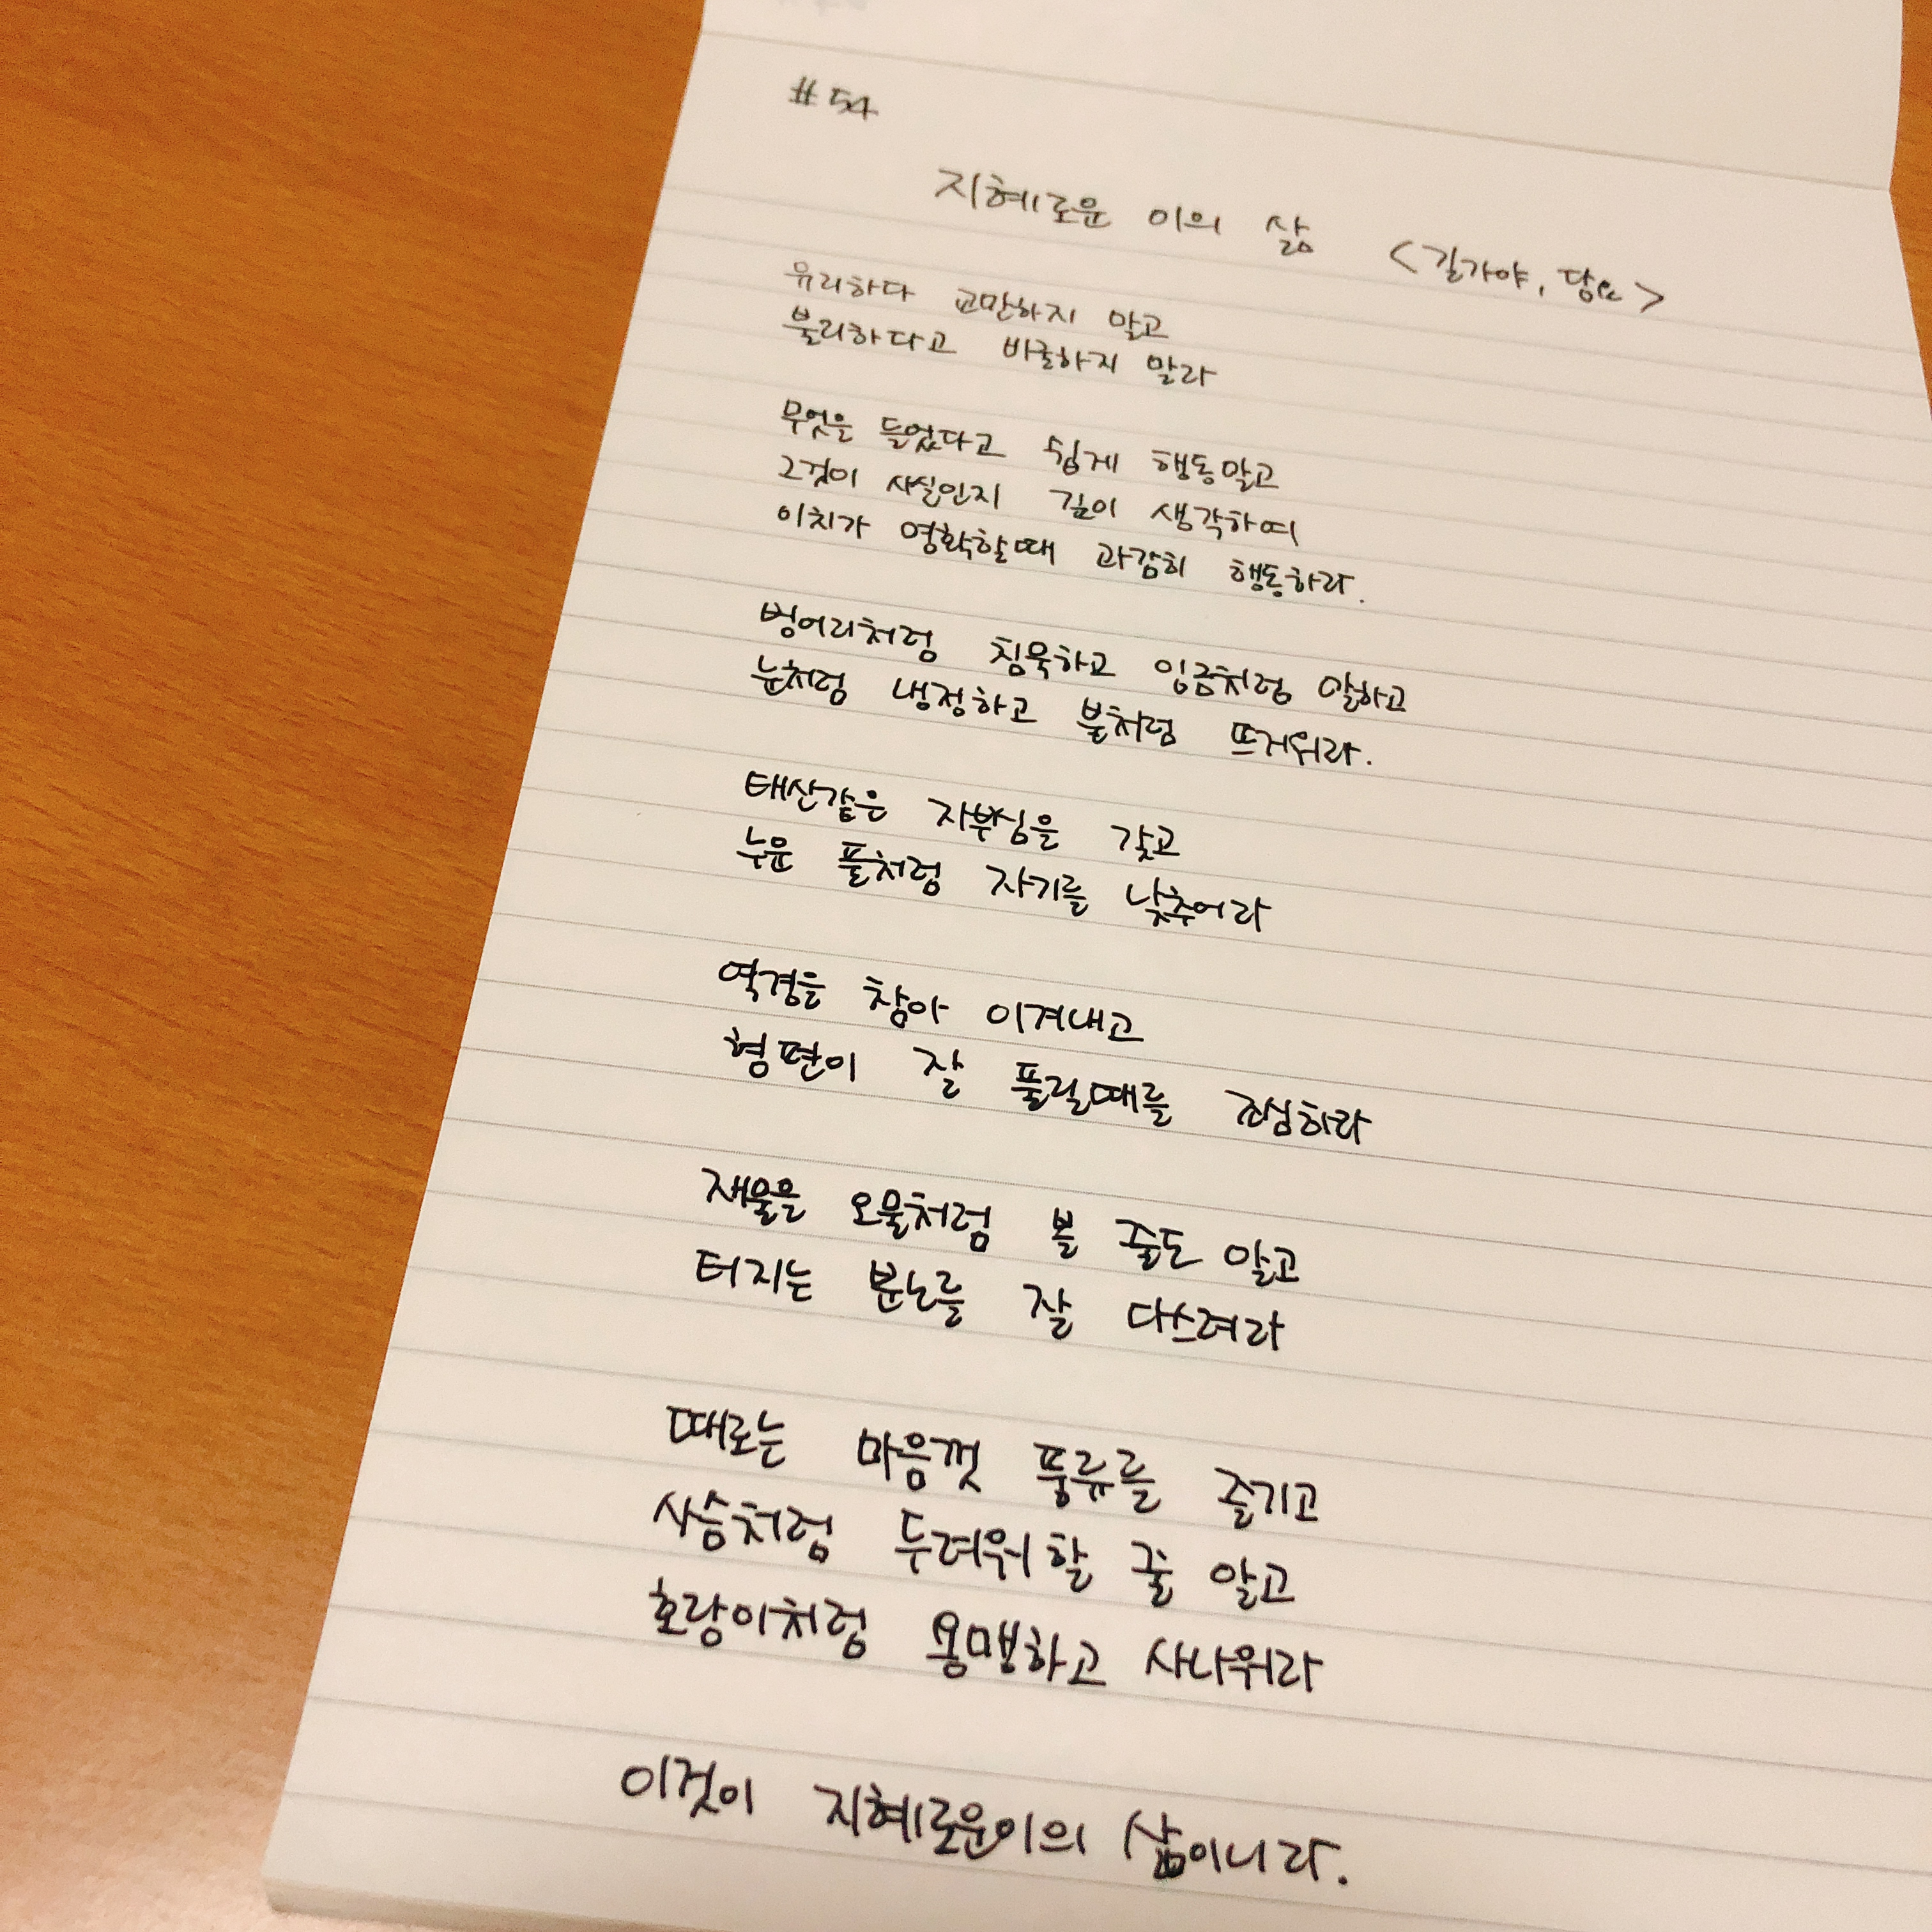 #54
지혜로운 이의 삶 <길가야, 당요>
유리하다 교만하지 말고
불리하다고 비굴하지 말라
무엇을 들었다고 쉽게 행동말고
그것이 사실인지 깊이 생각하여
이치가 명확할때 과감히 행동하라.
벙어리처럼 침묵하고 임금처럼 말하고
눈처럼 냉정하고 불처럼 뜨거워라.
태산같은 자부심을 갖고
누운 풀처럼 자기를 낮추어라
역경을 참아 이겨내고
형편이 잘 풀릴때를 조심하라
재물을 오물처럼 볼 줄도 알고
터지는 분노를 잘 다스려라
때로는 마음껏 풍류를 즐기고
사슴처럼 두려워할 줄 알고
호랑이처럼 용맹하고 사나워라
이것이 지혜로운이의 삶이니라.